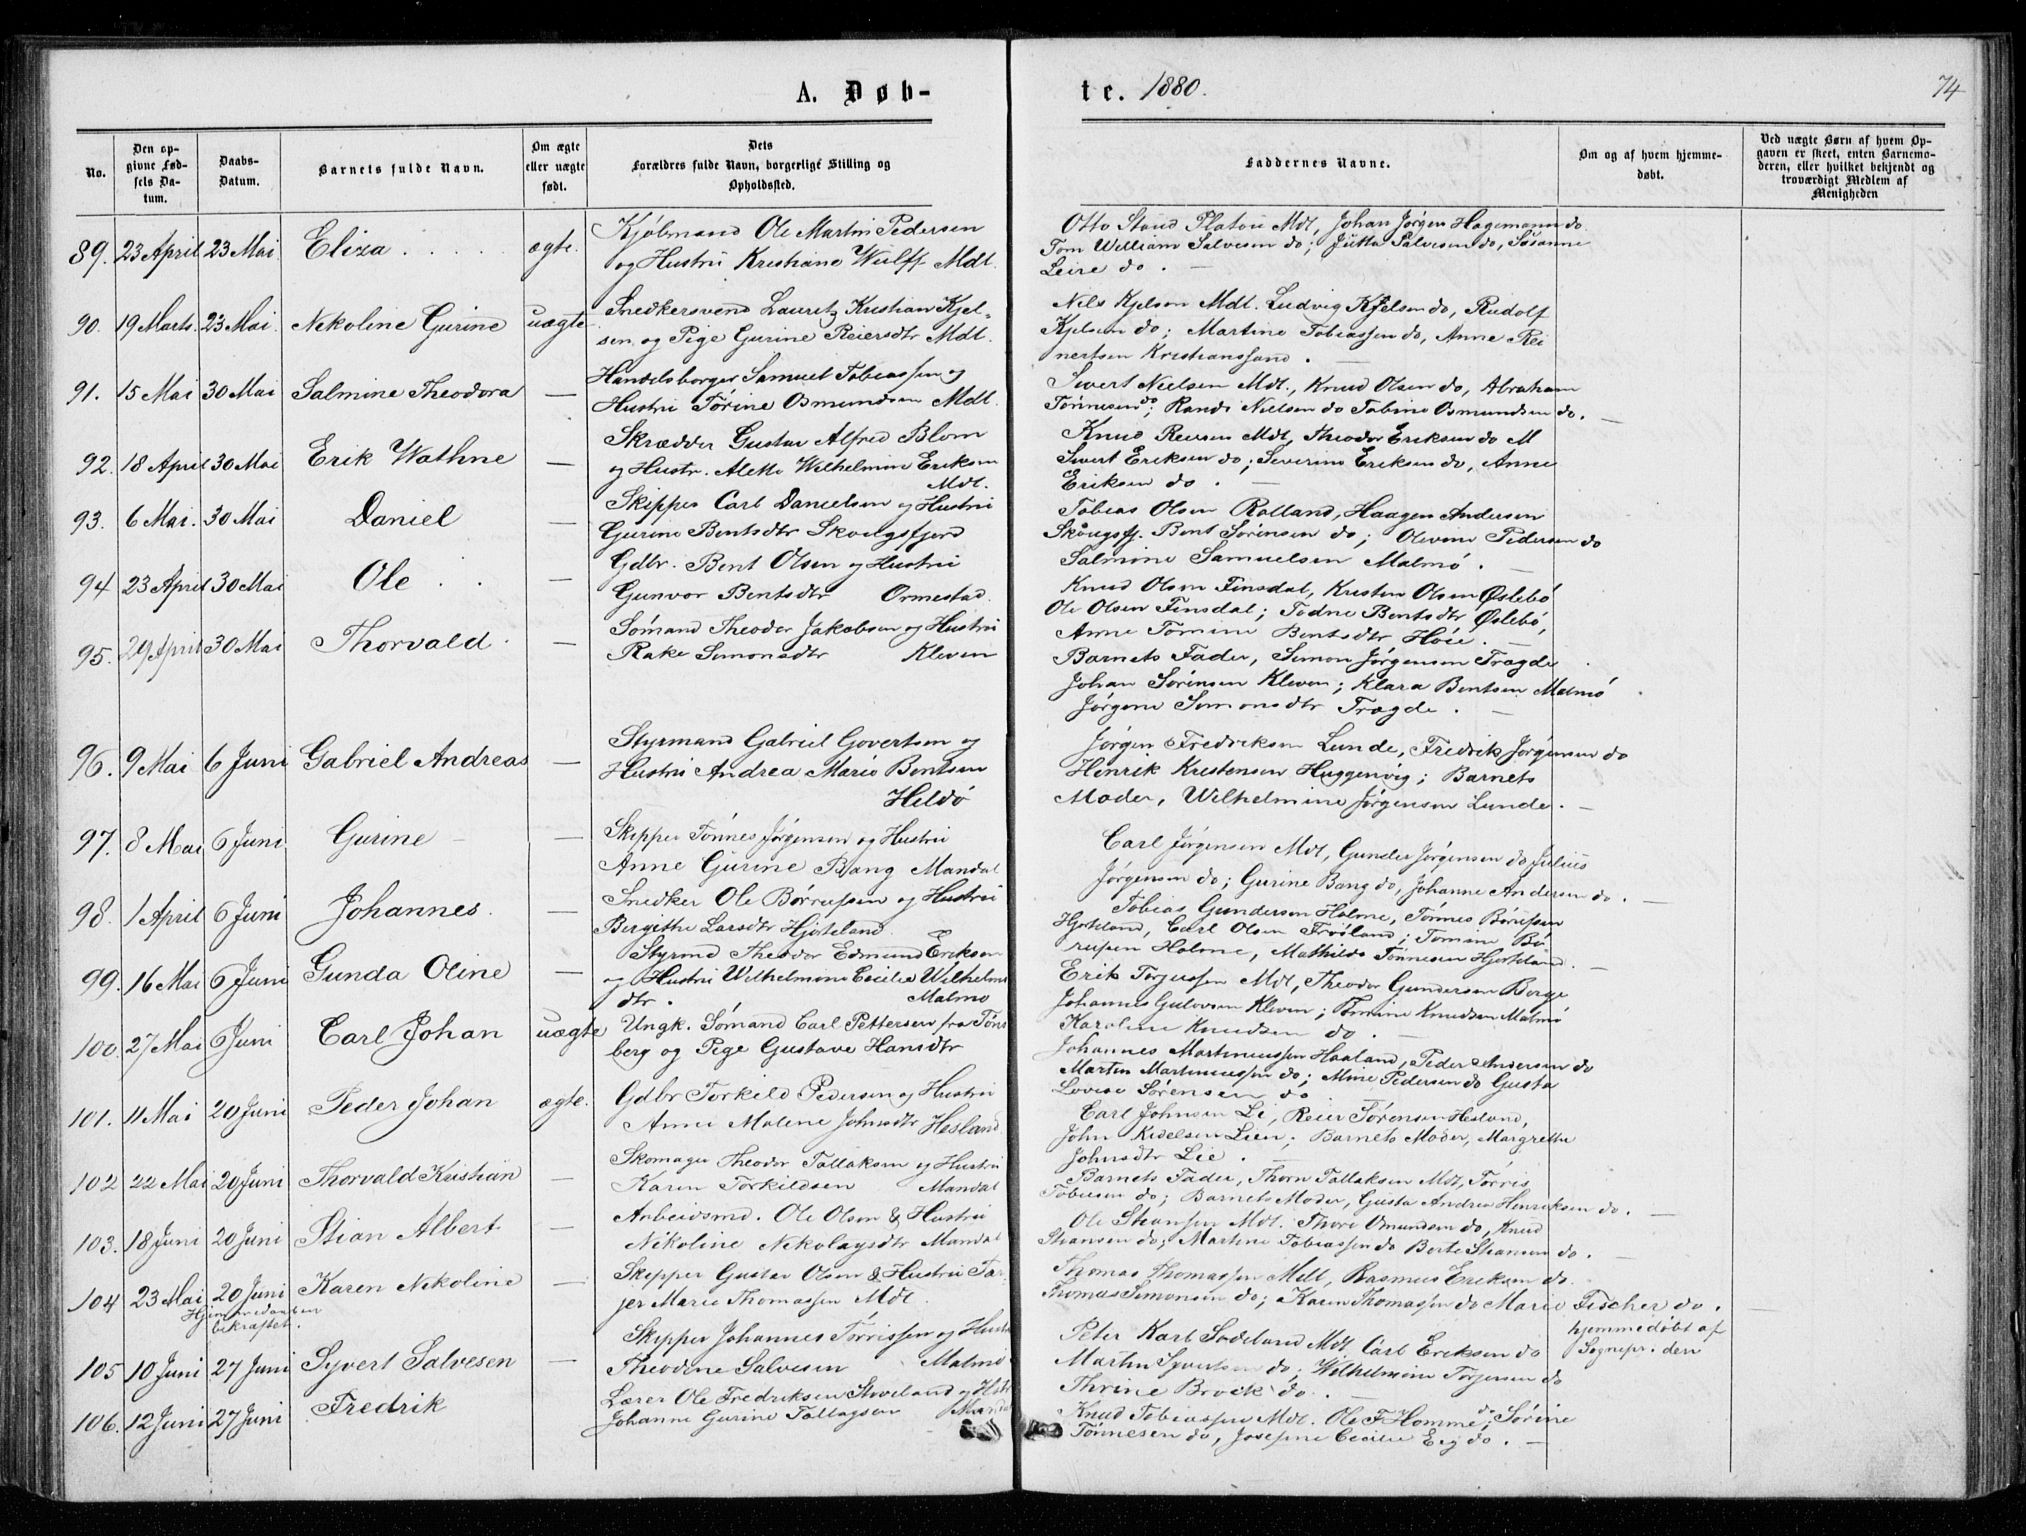 A. Døb-
te. 1880.
74
No.
Den op-
givne Fød-
sels Da-
tum.
Daabs-
Datum.
Barnets fulde Navn.
Om ægte
eller uægte
født.
Dets
Forældres fulde Navn, borgerlige Stilling og
Opholdssted.
Faddernes Navne.
Om og af hvem hjemme-
døbt.
Ved uægte Børn af hvem Op-
gaven er skeet, enten Barnemo-
deren, eller hvilket bekjendt og
troværdigt Medlem af
Menigheden
89. 23 April 23 Mai. Eliza . . . . ægte.
Kjøbmand Ole Martin Pedersen
og Hustru Kristiane Wulff Mdl.
Otto Stoud Platou Mdl, Johan Jørgen Hagemann do.
Tom William Salvesen do; Jutta Salvesen do, Susanne
Leire do. —
90. 19 Marts. 23 Mai. Nikoline Gurine uægte
Snedkersvend Lauritz Kristian Kjel-
sen og Pige Gurine Reiersdtr Mdl.
Nils Kjelsen Mdl. Ludvig Kjelsen do, Rudolf
Kjelsen do; Martine Tobiassen do, Anne Rei
nertsen Kristianssand. —
91. 15 Mai 30 Mai Salmine Theodora —
Handelsborger Samuel Tobiassen og
Hustru Tørine Osmundsen Mdl.
Sivert Nielsen Mdl., Knud Olsen do, Abraham
Tønnesen do; Randi Nielsen do Tobine Osmundsen do. —
92. 18 April 30 Mai Erik Wathne —
Skrædder Gustav Alfred Blom
og Hustr. Alette Wilhelmine Eriksen
Mdl.
Knud Reiersen Mdl, Theodor Eriksen do
Sivert Eriksen do; Severine Eriksen do, Anne
Eriksen do. —
93. 6 Mai. 30 Mai Daniel —
Skipper Carl Danielsen og Hustru
Gurine Bentsdtr Skougsfjord
Tobias Olsen Rolland, Haagen Andersen
Skougsfj. Bent Sørensen do; Olevine Pedersen do
Salmine Samuelsen Malmø. —
94 23 April 30 Mai Ole . . —
Gdbr. Bent Olsen og Hustru
Gunvor Bentsdtr Ormestad.
Knud Olsen Finsdal, Kristen Olsen Øslebø
Ole Olsen Finsdal; Todne Bentsdtr Øslebø,
Anne Tomine Bentsdtr Høie. —
95. 29 April 30 Mai Thorvald. —
Sømand Theodor Jakobsen og Hustru
Rake Simonsdtr Kleven
Barnets Fader, Simon Jørgensen Tragde
Johan Sørensen Kleven; Klara Bentsen Malmø
Jørgine Simonsdtr Tragde. —
96. 9 Mai 6 Juni Gabriel Andreas —
Styrmand Gabriel Govertsen og
Hustru Andrea Marie Bentsen
Hildø
Jørgen Fredriksen Lunde, Fredrik Jørgensen do
Henrik Kristensen Huggenvig; Barnets
Moder, Wilhelmine Jørgensen Lunde. —
97. 8 Mai 6 Juni Gurine — —
Skipper Tønnes Jørgensen og Hustru
Anne Gurine Bang Mandal
Carl Jørgensen Mdl, Gunder Jørgensen do Julius
Jørgensen do; Gurine Bang do, Johanne Andersen do. —
98. 1 April 6 Juni Johannes. —
Snedker Ole Børrussen og Hustru
Bergithe Larsdtr Hjorteland.
Tobias Gundersen Holme, Tønnes Børussen
Hjorteland, Carl Olsen Frøiland; Tomine Bø-
russen Holme, Mathilde Tønnesen Hjorteland. —
99. 16 Mai 6 Juni Gunda Oline —
Styrmd Theodor Edmund Eriksen
og Hustru Wilhelmine Cecilie Wilhelms
dtr. Malmø
Erik Torjussen Mdl, Theodor Gundersen Berge
Johannes Gulovsen Kleven; Tomine Knudsen Malmø
Karoline Knudsen do. —
100. 27 Mai 6 Juni Carl Johan uægte
Ungk. Sømand Carl Pettersen fra Tøns
berg og Pige Gustave Hansdtr
Johannes Martinussen Haaland, Peder Andersen do
Martin Martinussen do; Mine Pedersen do Gusta
Lovise Sørensen do
101. 11 Mai 20 Juni Peder Johan ægte.
Gdbr Torkild Pedersen og Hustru
Anne Malene Johnsdtr Hesland
Carl Johnsen Li, Reier Sørensen Hesland,
John Kidelsen Lien; Barnets Moder, Margrethe
Johnsdtr Lie. —
102 22 Mai 20 Juni Thorvald Kristian —
Skomager Theodor Tallaksen og Hustru
Karen Torkildsen Mandal
Barnets Fader, Thorn Tallaksen Mdl, Tørris
Tobiesen do; Barnets Moder, Gusta Andrea Henriksen do. —
103. 18 Juni 20 Juni Stian Albert —
Arbeidsmd. Ole Olsen & Hustru
Nikoline Nikolaysdtr Mandal
Ole Stiansen Mdl. Thore Omundsen do, Knud
Stiansen do; Martine Tobiassen do Berte Stiansen do. —
104 23 Mai 20 Juni Karen Nikoline —
Hjemmedaaben
bekræftet.
Skipper Gustav Olsen & Hustru Tar
jer Marie Thomassen Mdl
Thomas Thomassen Mdl, Rasmus Eriksen do.
Thomas Simonsen do; Karen Thomassen do Marie Fischer do. —
hjemmedøbt af
Sognepr. den
105 10 Juni 27 Juni Syvert Salvesen —
Skipper Johannes Tørrissen og Hust
Theodine Salvesen Malmø.
Peter Karl Sodeland Mdl Carl Eriksen do
Martin Syvertsen do; Wilhelmine Torjersen do
Thrine Brock do. —
106. 12 Juni 27 Juni Fredrik
Lærer Ole Fredriksen Stoveland og Hstr
Johanne Gurine Tallagsen Mandal
Knud Tobiassen Mdl. Ole F. Homme do; Sørine
Tønnesen do, Josefine Cecilie Eeg do. —